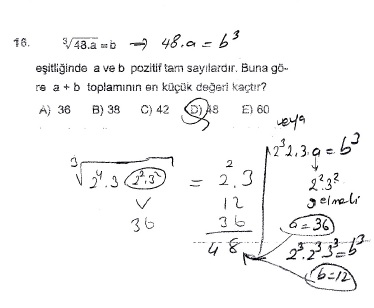 16. ∛48.a = b → 48.a = b³
eşitliğinde a ve b pozitif tam sayılardır. Buna gö-
re a + b toplamının en küçük değeri kaçtır?
A) 36 B) 38 C) 42 D) 48 E) 60
veya
∛2⁴.3 2².3² = 2².3
36
12
36
48
2³2.3.a = b³
2².3²
gelmeli
a = 36
2³.2³3³ = b³
b = 12